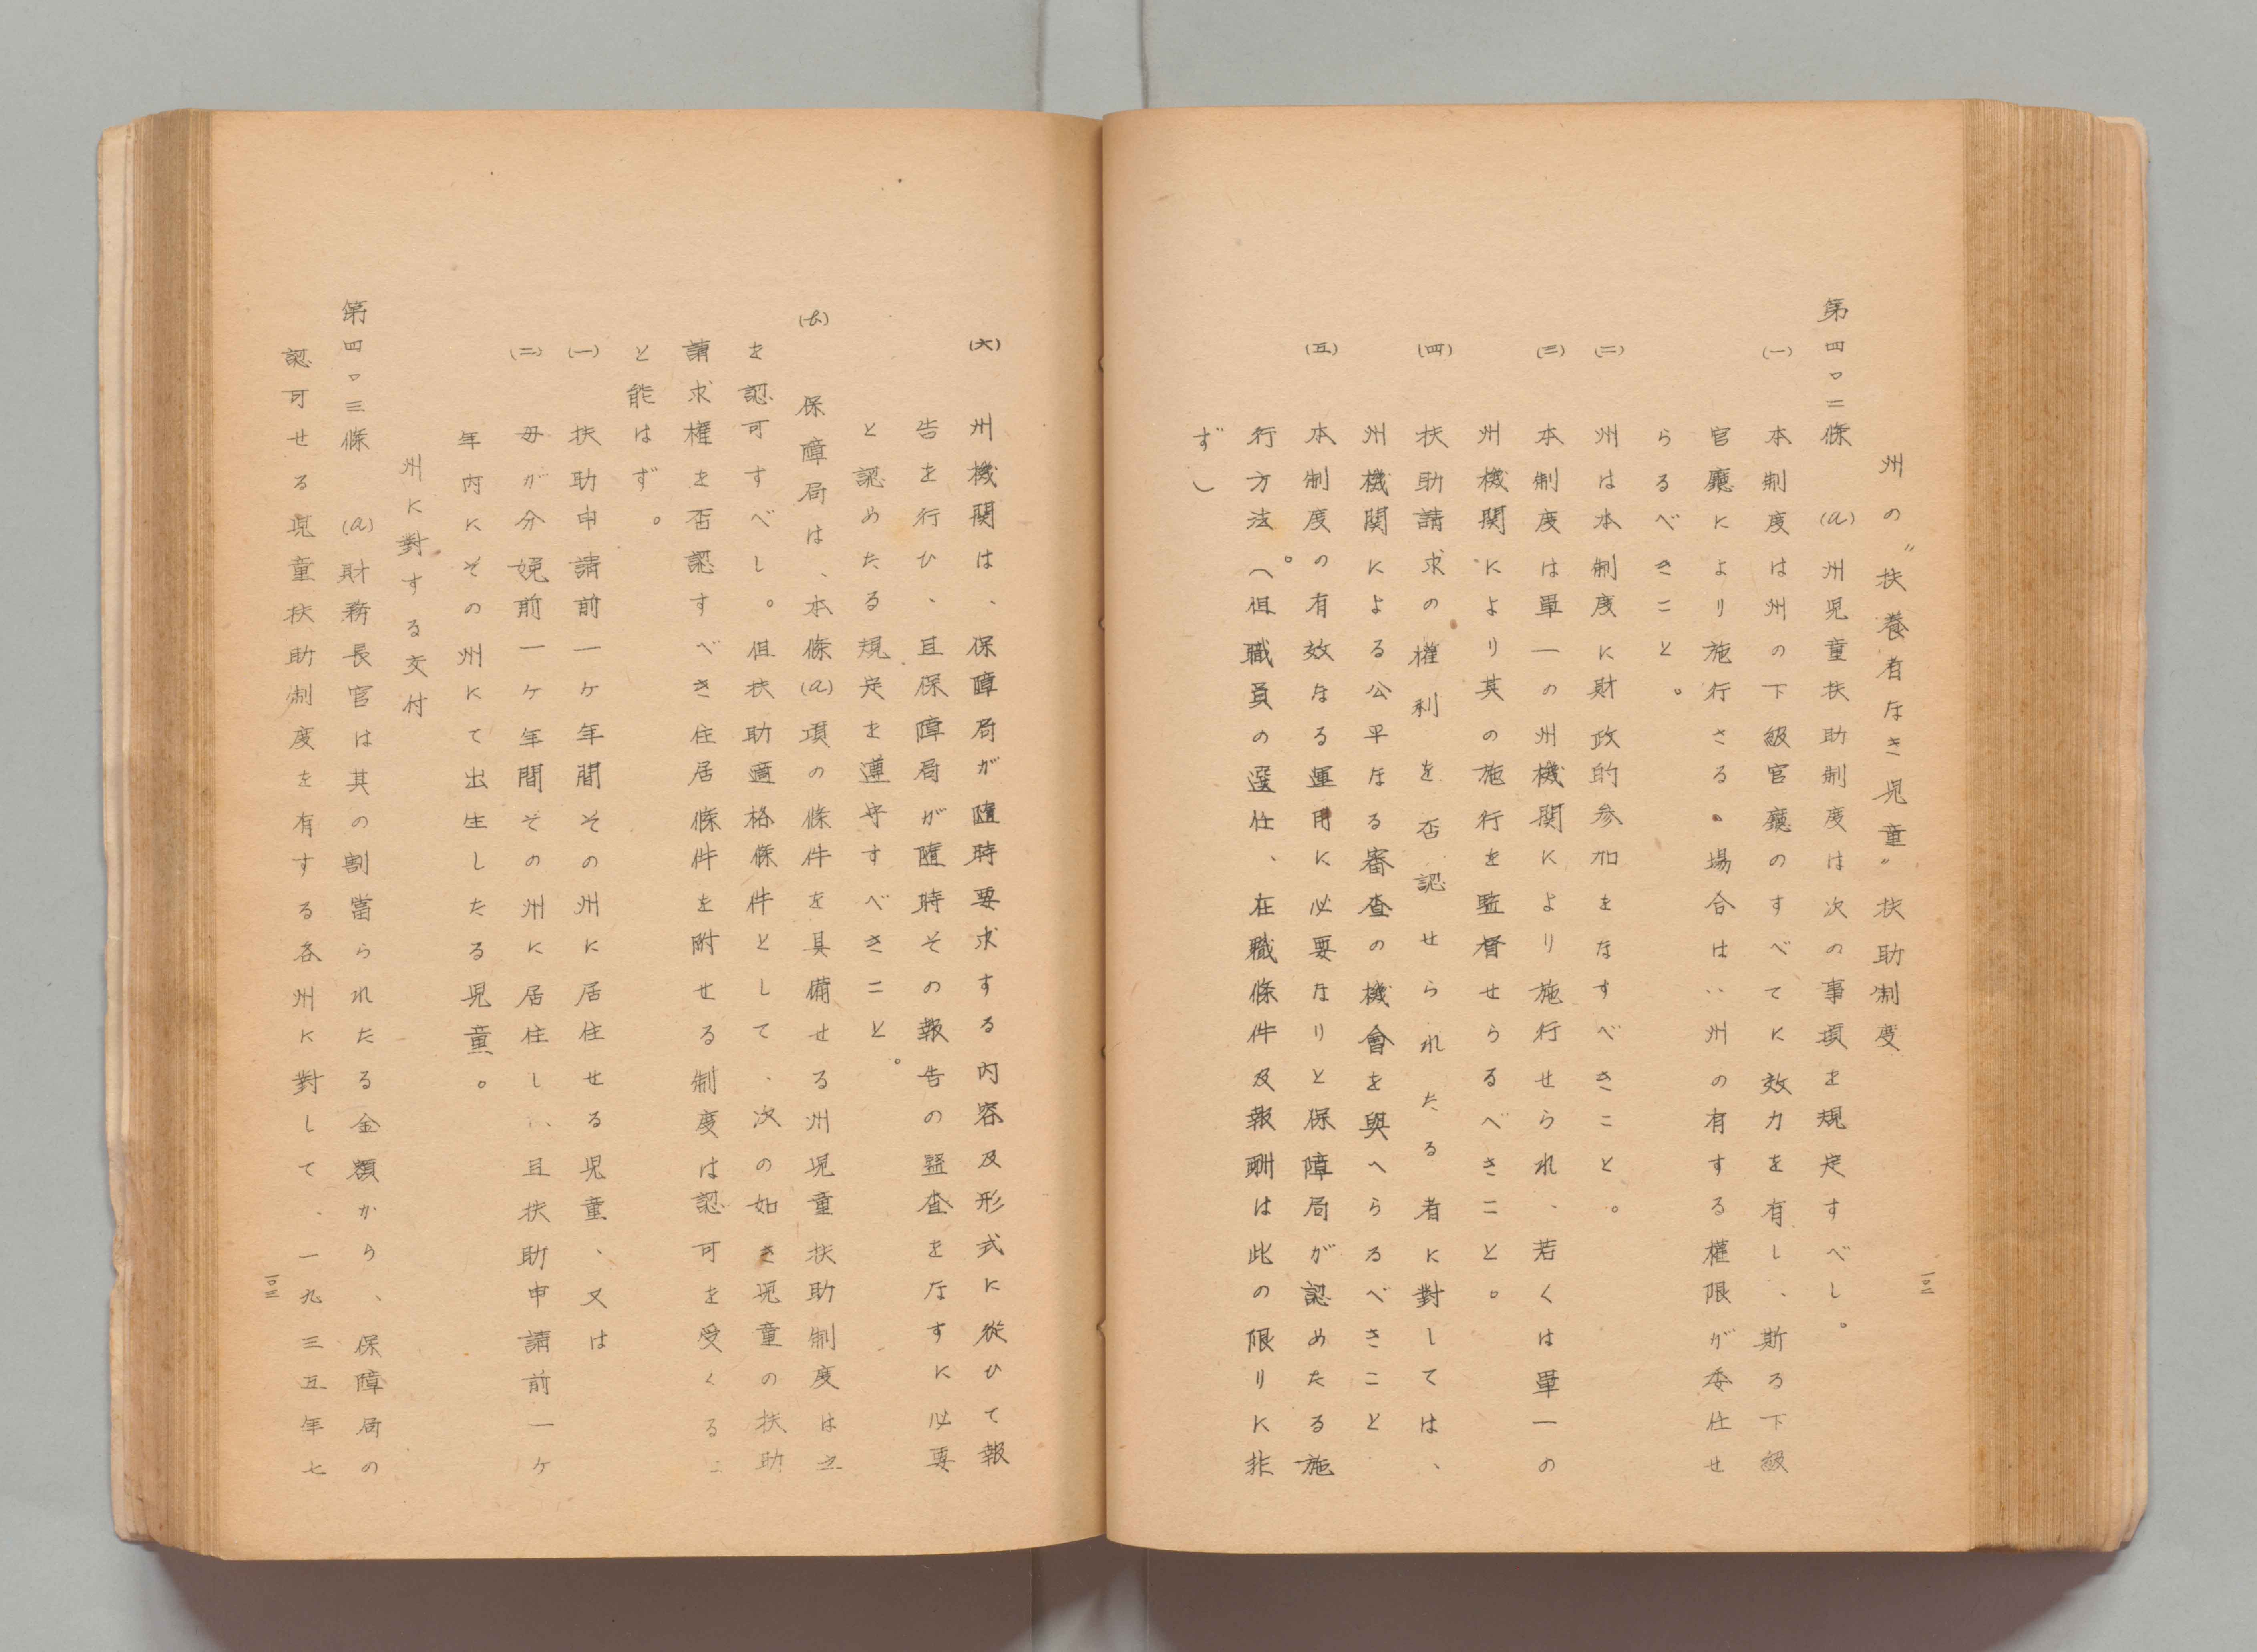 州の〝扶養者なき児童〟扶助制度
第四〇二條　(a)州児童扶助制度は次の事項を規定すべし。
(一)　本制度は州の下級官廳のすべてに效力を有し、斯る下級
官廳により施行さる・場合は、州の有する權限が委任せ
らるべきこと。
(二)　州は本制度に財政的参加をなすべきこと。
(三)　本制度は單一の州機関により施行せられ、若くは單一の
州機関により其の施行を監督せらるべきこと。
(四)　扶助請求の權利を否認せられたる者に對しては、
州機関による公平なる審査の機會を與へらるべきこと
(五)　本制度の有效なる運用に必要なりと保障局が認めたる施
行方法。(但職員の選任、在職條件及報酬は此の限りに非
ず)
一〇二
(六)　州機関は、保障局が随時要求する内容及形式に從ひて報
告を行ひ、且保障局が随時その報告の監査をなすに必要
と認めたる規定を遵守すべきこと。
(b)　保障局は、本條(a)項の條件を具備せる州児童扶助制度は之
を認可すべし。但扶助適格條件として、次の如き児童の扶助
請求權を否認すべき住居條件を附せる制度は認可を受くるこ
と能はず。
(一)　扶助申請前一ヶ年間その州に居住せる児童、又は
(二)　母が分娩前一ヶ年間その州に居住し、且扶助申請前一ヶ
年内にその州にて出生したる児童。
州に對する交付
第四〇三條　(a)財務長官は其の割當られたる金額から、保障局の
認可せる児童扶助制度を有する各州に對して、一九三五年七
一〇三